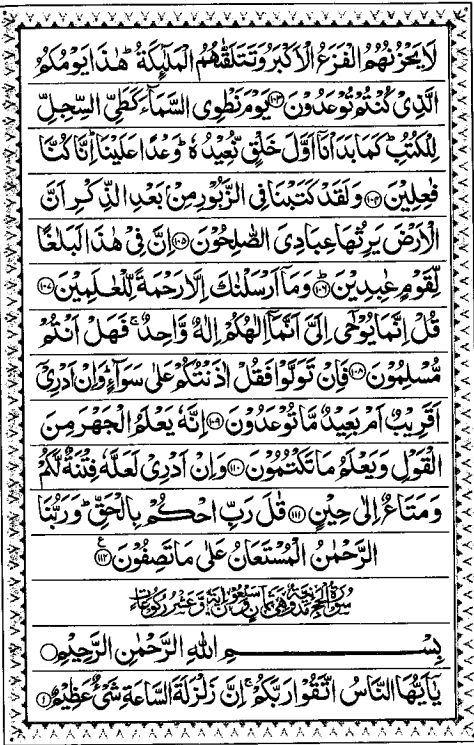 لَا يَحْزُنُهُمُ الْفَزَعُ الْاَكْبَرُ وَتَتَلَقّٰهُمُ الْمَلٰٓئِكَةُ ؕ هٰذَا يَوْمُكُمُ
الَّذِىْ كُنْتُمْ تُوْعَدُوْنَ ۝۱۰۳ يَوْمَ نَطْوِى السَّمَآءَ كَطَىِّ السِّجِلِّ
لِلْكُتُبِ ؕ كَمَا بَدَاْنَاۤ اَوَّلَ خَلْقٍ نُّعِيْدُهٗ ؕ وَعْدًا عَلَيْنَا ؕ اِنَّا كُنَّا
فٰعِلِيْنَ ۝۱۰۴ وَلَقَدْ كَتَبْنَا فِى الزَّبُوْرِ مِنْۢ بَعْدِ الذِّكْرِ اَنَّ
الْاَرْضَ يَرِثُهَا عِبَادِىَ الصّٰلِحُوْنَ ۝۱۰۵ اِنَّ فِىْ هٰذَا لَبَلٰغًا
لِّقَوْمٍ عٰبِدِيْنَ ۝۱۰۶ وَمَاۤ اَرْسَلْنٰكَ اِلَّا رَحْمَةً لِّلْعٰلَمِيْنَ ۝۱۰۷
قُلْ اِنَّمَا يُوْحٰٓى اِلَىَّ اَنَّمَاۤ اِلٰهُكُمْ اِلٰهٌ وَّاحِدٌ ۚ فَهَلْ اَنْتُمْ
مُّسْلِمُوْنَ ۝۱۰۸ فَاِنْ تَوَلَّوْا فَقُلْ اٰذَنْتُكُمْ عَلٰى سَوَآءٍ ؕ وَاِنْ اَدْرِىْۤ
اَقَرِيْبٌ اَمْ بَعِيْدٌ مَّا تُوْعَدُوْنَ ۝۱۰۹ اِنَّهٗ يَعْلَمُ الْجَهْرَ مِنَ
الْقَوْلِ وَيَعْلَمُ مَا تَكْتُمُوْنَ ۝۱۱۰ وَاِنْ اَدْرِىْ لَعَلَّهٗ فِتْنَةٌ لَّكُمْ
وَمَتَاعٌ اِلٰى حِيْنٍ ۝۱۱۱ قٰلَ رَبِّ احْكُمْ بِالْحَقِّ ؕ وَرَبُّنَا
الرَّحْمٰنُ الْمُسْتَعَانُ عَلٰى مَا تَصِفُوْنَ ۝۱۱۲ ع
سُوْرَةُ الْحَجِّ مَدَنِيَّةٌ وَّهِىَ ثَمَانٍ وَّسَبْعُوْنَ اٰيَةً وَّعَشْرُ رُكُوْعَاتٍ
بِسْمِ اللهِ الرَّحْمٰنِ الرَّحِيْمِ
يٰۤاَيُّهَا النَّاسُ اتَّقُوْا رَبَّكُمْ ۚ اِنَّ زَلْزَلَةَ السَّاعَةِ شَىْءٌ عَظِيْمٌ ۝۱